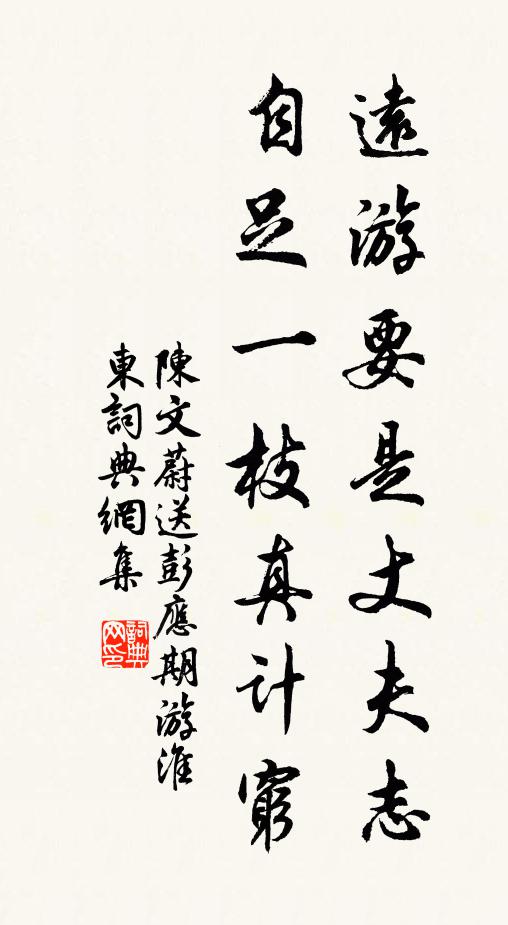 遠游要是丈夫志
自足一枝真計窮
陳文蔚送彭應期游淮
東詞典網集
詞典网印